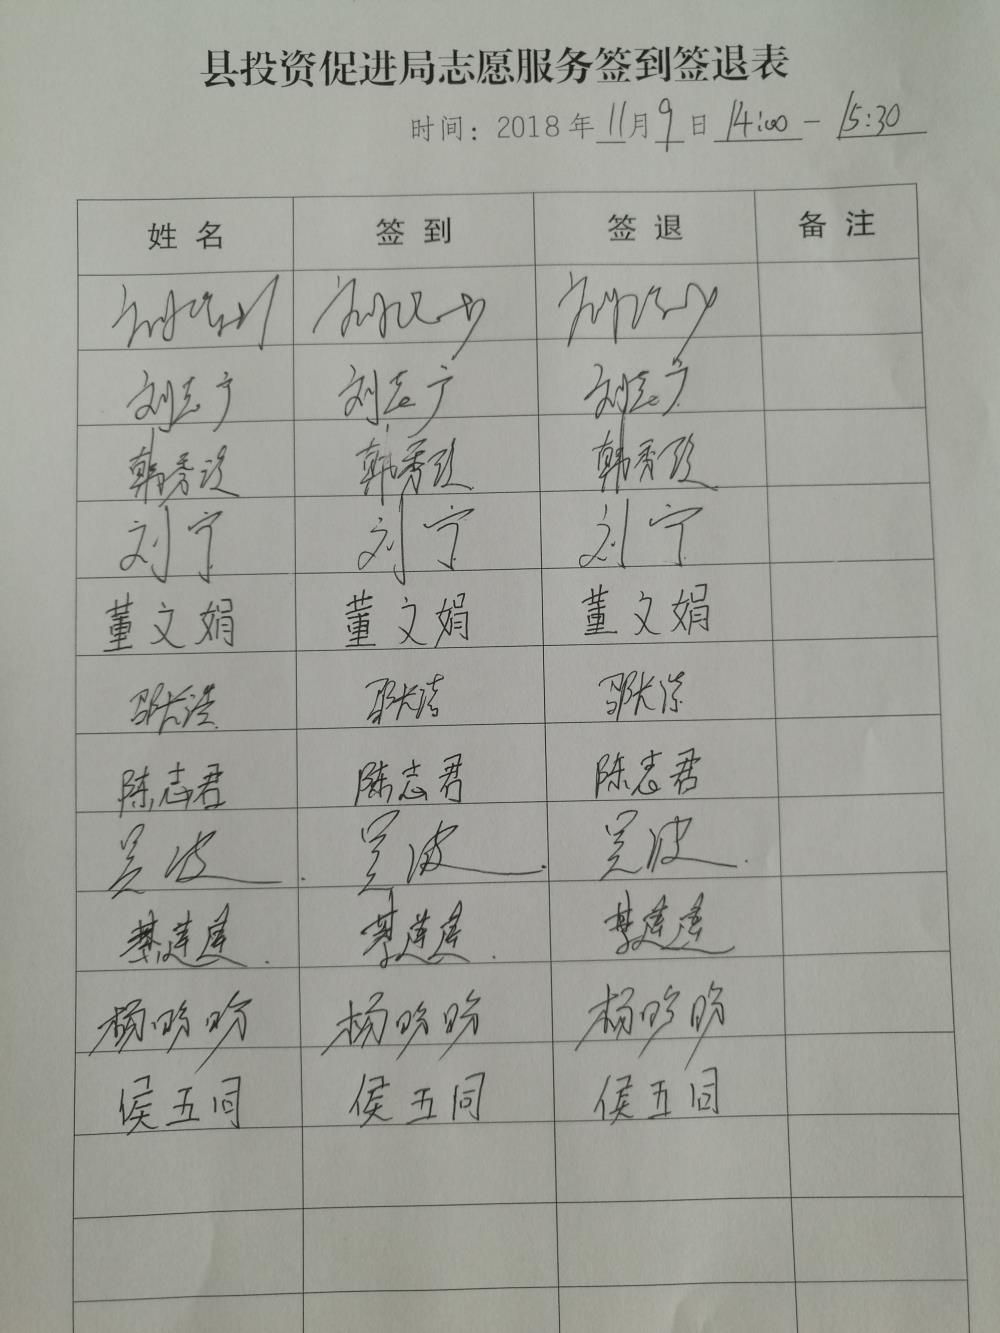 县投资促进局志愿服务签到签退表
时间：2018年11月9日 14:00-15:30
姓名 签到 签退 备注
刘志广 刘志广 刘志广
韩秀 韩秀 韩秀
刘宁 刘宁 刘宁
董文娟 董文娟 董文娟
陈志君 陈志君 陈志君
吴波 吴波 吴波
杨盼盼 杨盼盼 杨盼盼
侯五同 侯五同 侯五同